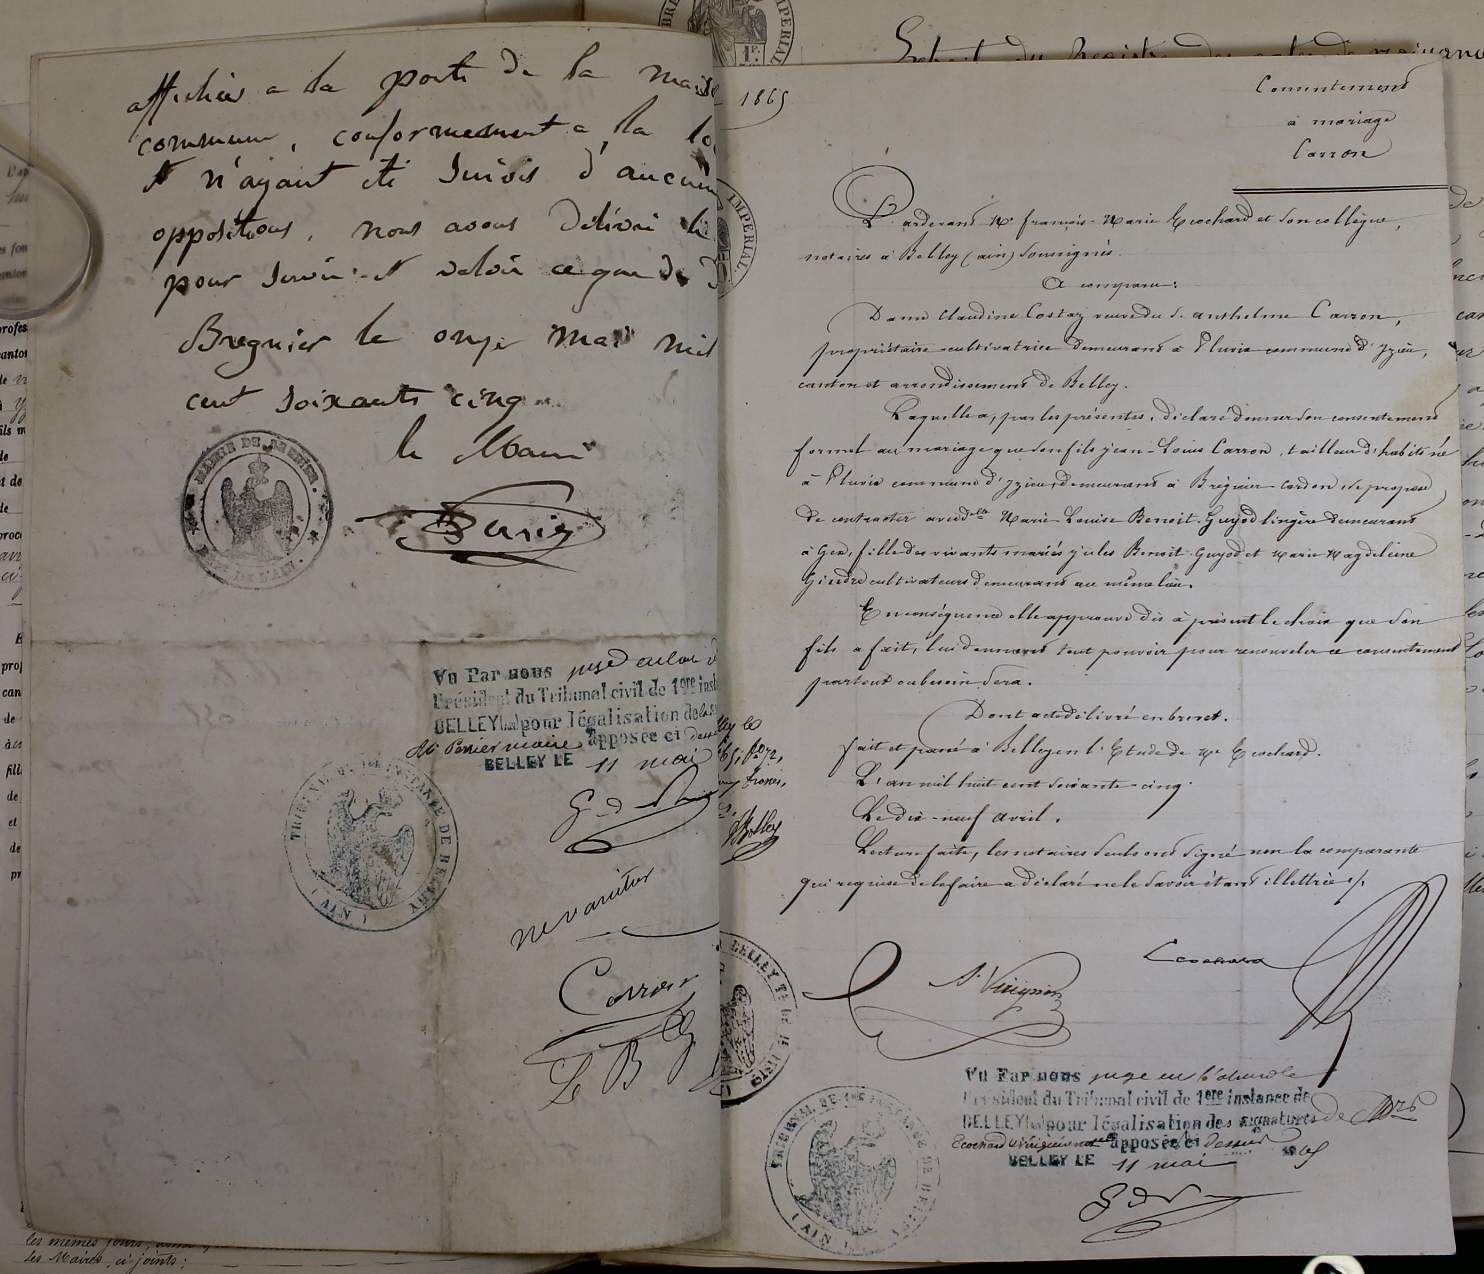 affichées a la porte de la mais
commune, conformement a la lo
et n'ayant été suivis d'aucun
oppositions, nous avons délivré le
pour servir et valoir ce que de
Bregnier le onze mai mil
cent soixante cinq
le Maire
MAIRIE DE BREGNIER
DEPT DE L'AIN
Vu Par nous juge en l'absence d
Président du Tribunal civil de 1ère inst
BELLEY (ain) pour légalisation de la s
apposée ci dessus
BELLEY LE 11 mai
TRIBUNAL DE 1ERE INSTANCE DE BELLEY
( AIN )
ne varietur
Carron
L B G
1865
Consentement
à mariage
Carron
Pardevant Me françois-Marie Ecochard et son collègue,
notaires à Belley (ain) soussignés.
A comparu:
Dame Claudine Costaz veuve du S. anthelme Carron,
propriétaire-cultivatrice demeurant à Pluvis commune d'Izieu,
canton et arrondissement de Belley.
Laquelle a, par les présentes, déclaré donner son consentement
formel au mariage que son fils jean-Louis Carron, tailleur d'habits né
à Pluvis commune d'Izieu, demeurant à Brégnier-Cordon se propose
de contracter avec dlle Marie-Louise Benoit-Guyod lingère demeurant
à Gex, fille des vivants mariés jules Benoit-Guyod et Marie Magdeleine
Gindre cultivateurs demeurant au même lieu.
En conséquence elle approuve dès à présent le choix que son
fils a fait, lui donnant tout pouvoir pour renouveler ce consentement
partout ou besoin sera.
Dont acte délivré en brevet.
fait et passé à Belley en l'Etude de Me Ecochard.
L'an mil huit cent soixante-cinq.
Le dix-neuf avril.
Lecture faite, les notaires seuls ont signé non la comparante
qui requise de le faire a déclaré ne le savoir étant illettrée ./.
Ecochard
Vu Par nous juge en l'absence de
Président du Tribunal civil de 1ère instance de
BELLEY (ain) pour légalisation des signatures de Mrs
Ecochard apposées ci dessus
BELLEY LE 11 mai 1865
TRIBUNAL DE 1ERE INSTANCE DE BELLEY
( AIN )
les mêmes jours,
les Maires, ci-joints;